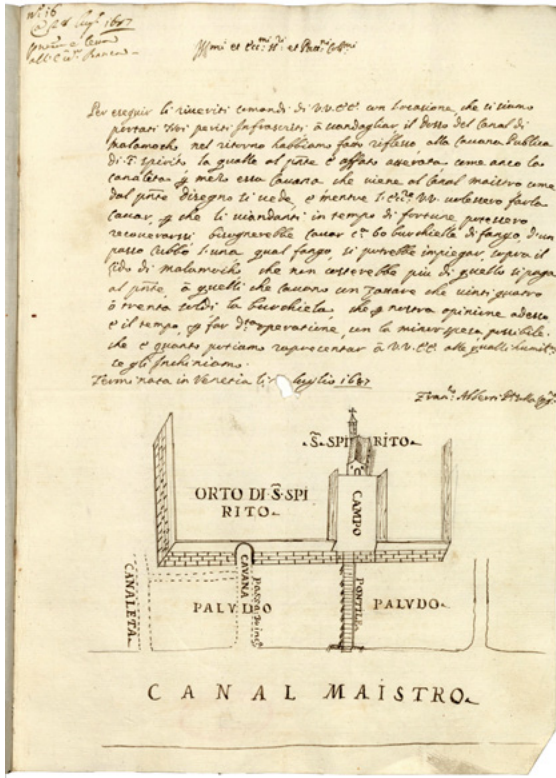 Nº 16
1687
Per eseguir li riveriti comandi di V.V. E.E. con l'ocasione, che ci siamo
portati Noi periti Infrascriti à scandagliar il dosso del Canal di
Malamocho nel ritorno habbiamo fatto riflesso alla Cavana Publica
di S. Spirito la qualle al pñte è affato atterata come anco la
canaleta, mezo essa Cavana che viene al Canal maistro come
dal pñte disegno si vede, e mentre V.V. volessero farla
cavar, che li viandanti in tempo di fortune potessero
recoverarsi bisognerebbe cavar 60 burchielle di fango, d'un
passo cubbo l'una qual fango, si potrebbe impiegar sopra il
lido di Malamocho, che non costerebbe più di quello si paga
al pñte à quelli che cavano che vinti quatro
ò trenta soldi la burchiela, che nostra opinione adesso
è il tempo, far operatione, con la minor spesa possibile
che è quanto potiamo rapresentar à V.V. E.E. alle qualli humilmte
Inchiniamo
Terminata in Venetia li luglio 1687
S̃. SPIRITO
ORTO DI S̃. SPI
RITO
CAMPO
CANALETA
CAVANA
PALVDO
PONTILE
PALVDO
CANAL MAISTRO